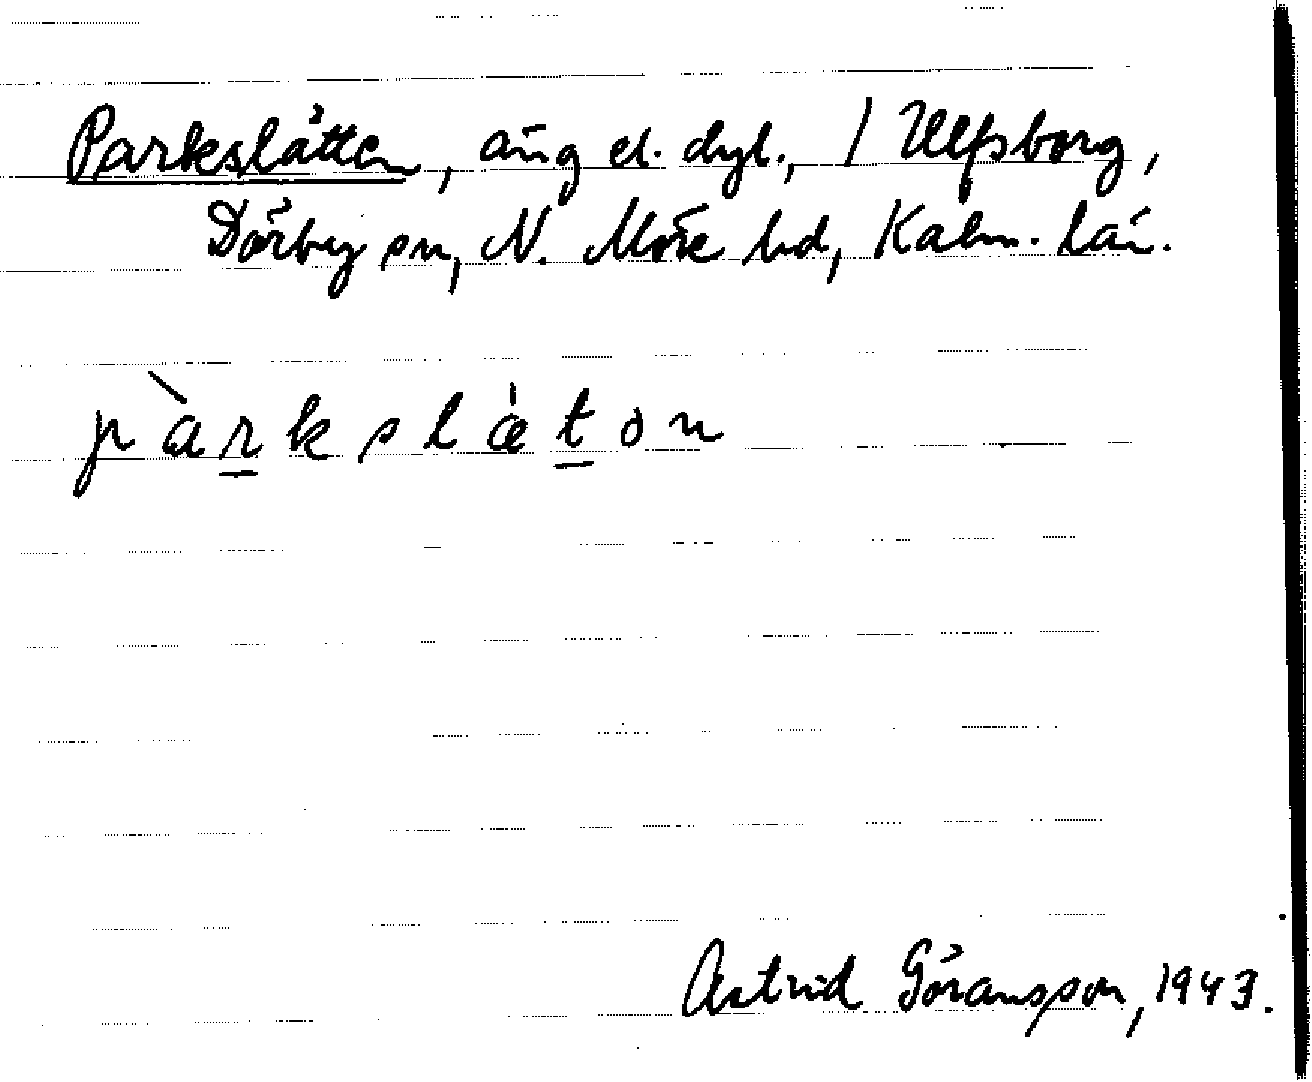 Parkslåtten, äng el. dyl., / Ulfsborg,
Dörby sn, N. Möre hd, Kalm. län.
pàrkslæ̍ton
Astrid Göransson, 1943.